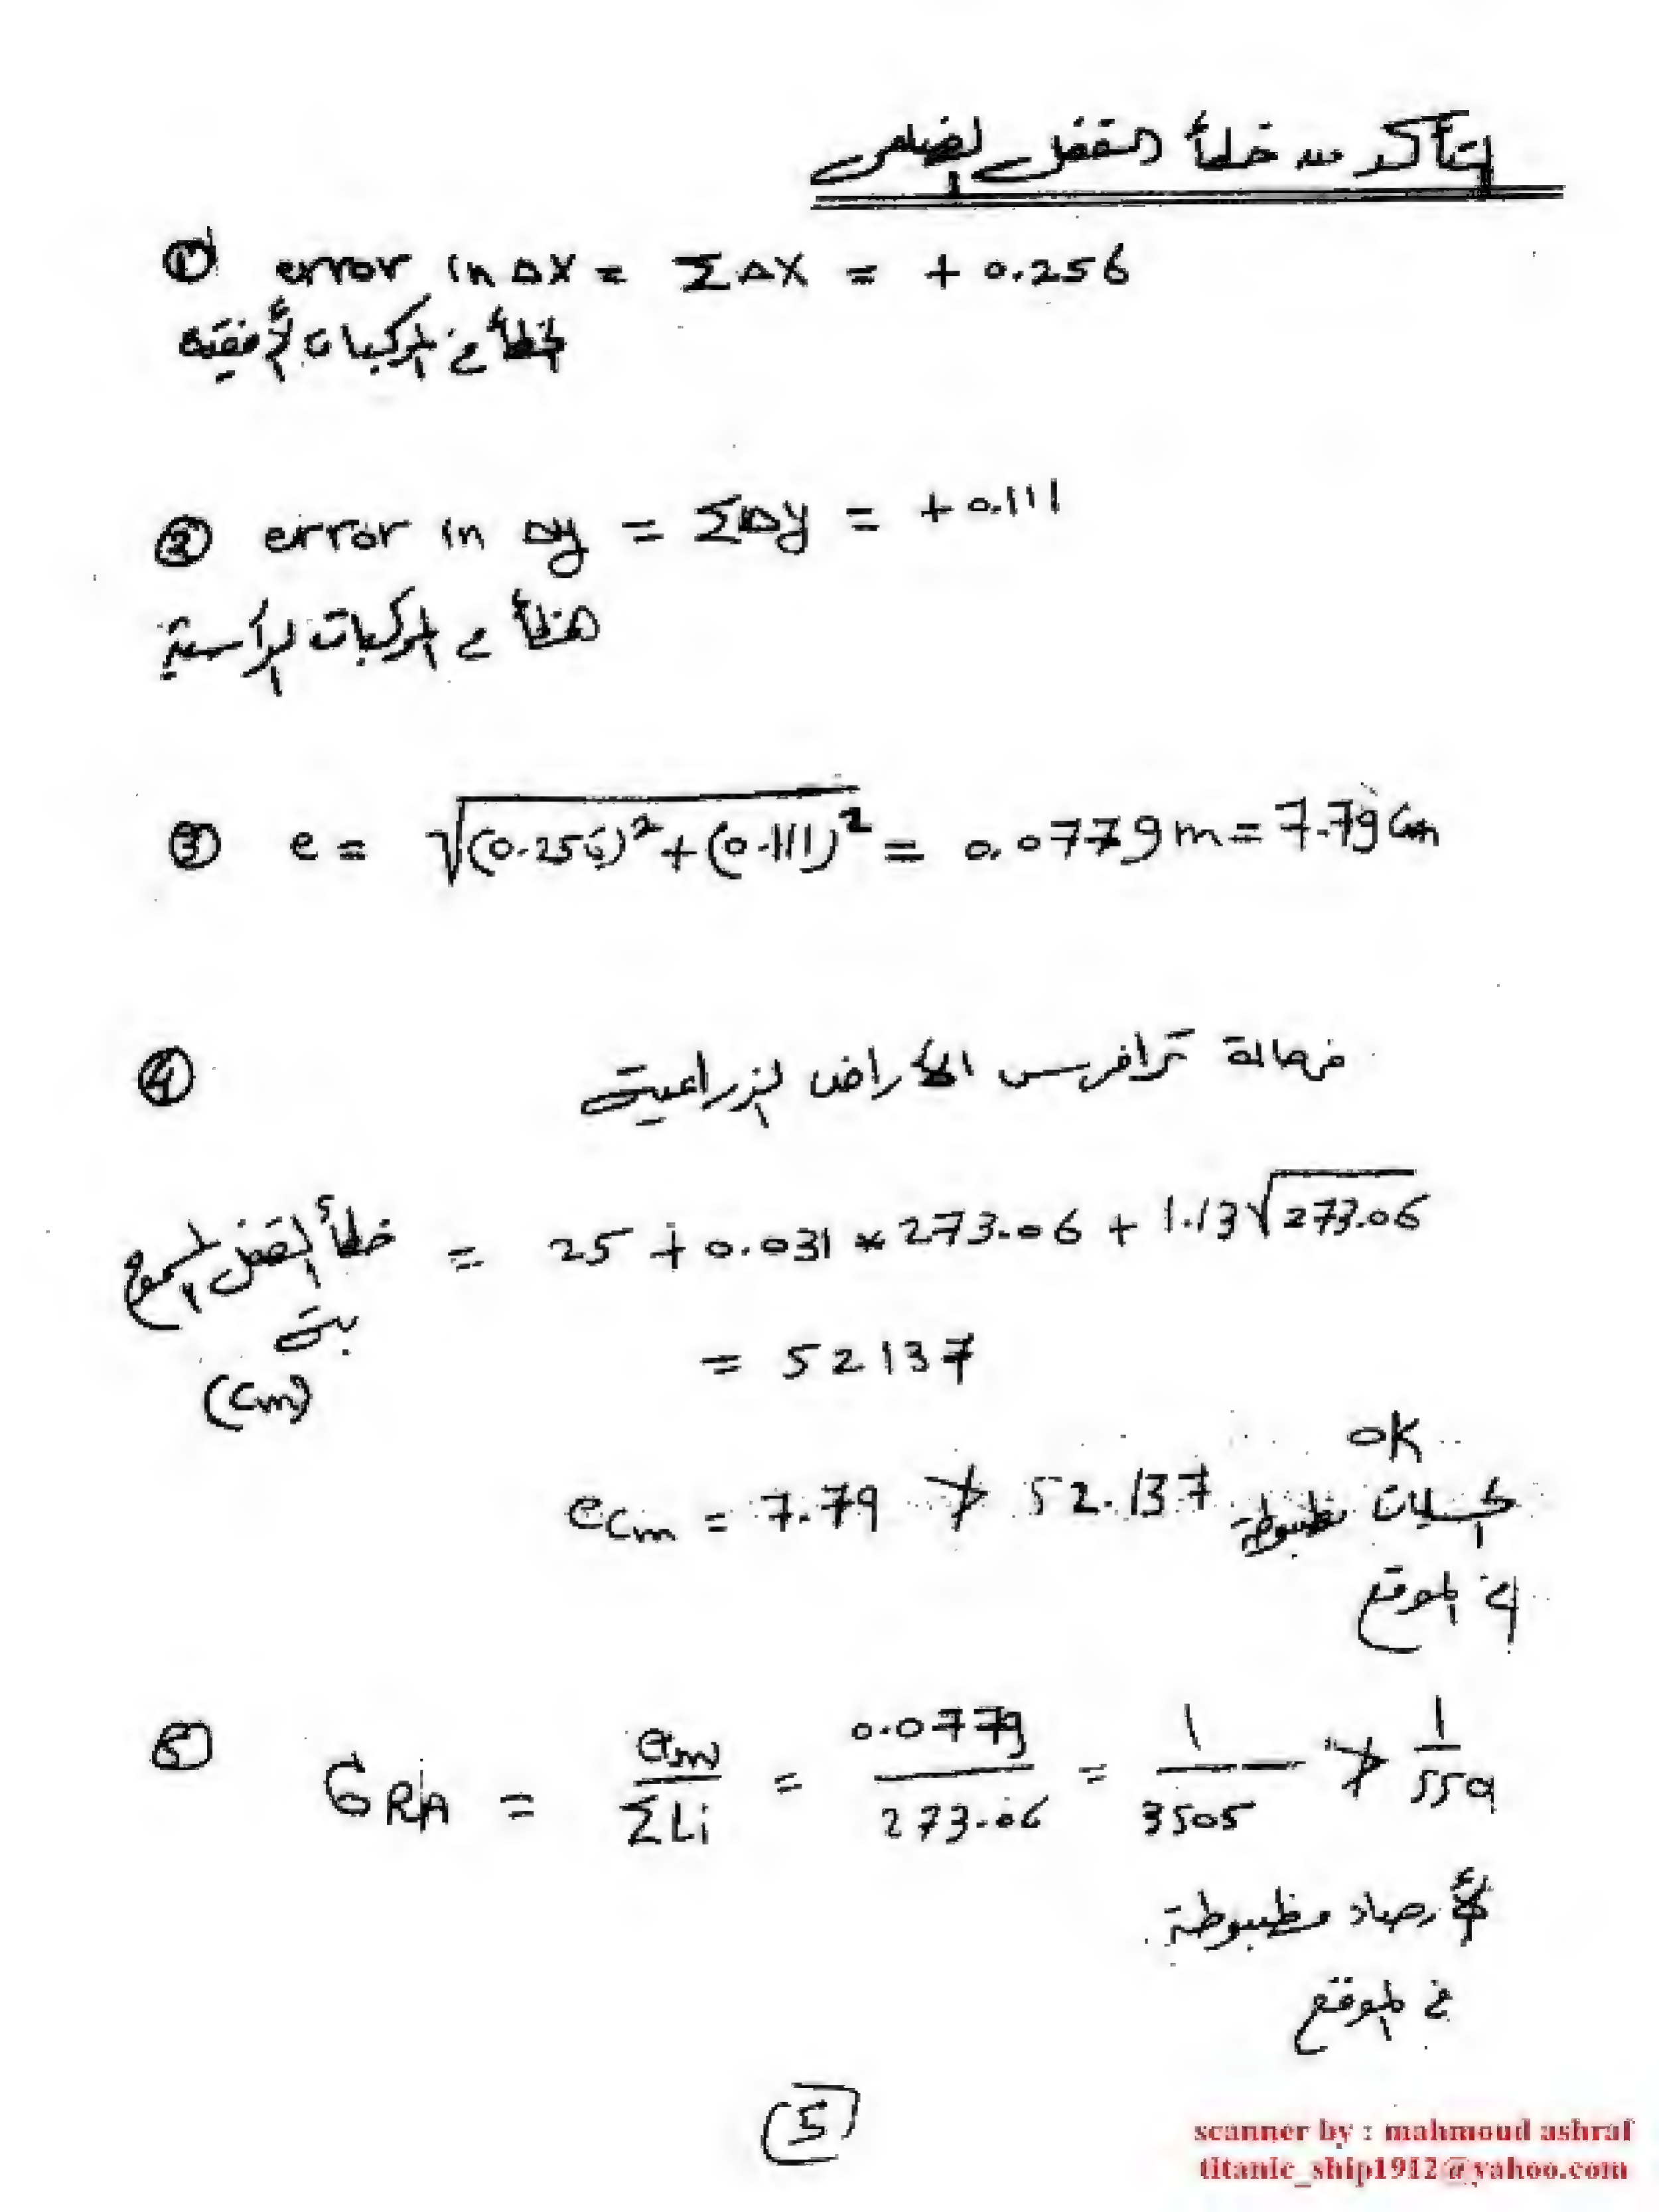 التأكد من خطأ القفل الضلعى
① error in ΔX = ΣΔX = + 0.256
الخطأ فى المركبات الأفقية
② error in Δy = ΣΔy = + 0.111
الخطأ فى المركبات الرأسية
③ e = √(0.256)² + (0.111)² = 0.0779 m = 7.79 Cm
④ فى حالة ترافرس الأراضى الزراعية
خطأ القفل المسموح = 25 + 0.031 * 273.06 + 1.13 √273.06
به
= 52137
(Cm)
OK
e Cm = 7.79 ≯ 52.137 الحسابات مظبوطة
فى الموقع
5 GRA = em / ΣLi = 0.0779 / 273.06 = 1 / 3505 ≯ 1 / 559
الأرصاد مظبوطة
فى الموقع
(5)
scanner by : mahmoud ashraf
titanic_ship1912@yahoo.com